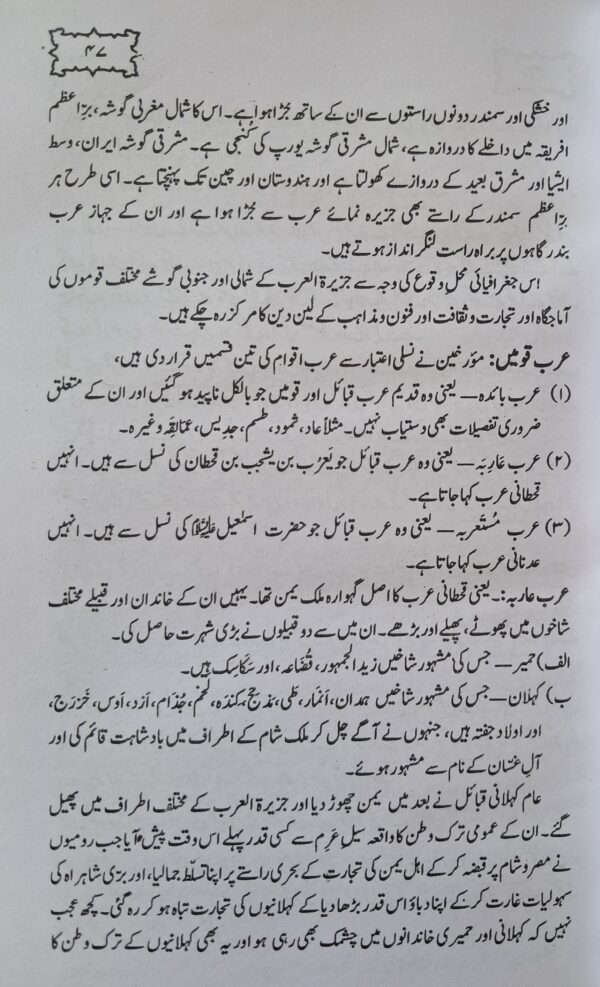 ۴۷
اور خشکی اور سمندر دونوں راستوں سے ان کے ساتھ جُڑا ہوا ہے۔ اس کا شمال مغربی گوشہ، برِّاعظم
افریقہ میں داخلے کا دروازہ ہے، شمال مشرقی گوشہ یورپ کی کنجی ہے۔ مشرقی گوشہ ایران، وسط
ایشیا اور مشرق بعید کے دروازے کھولتا ہے اور ہندوستان اور چین تک پہنچتا ہے۔ اسی طرح ہر
برِّاعظم سمندر کے راستے بھی جزیرہ نمائے عرب سے جُڑا ہوا ہے اور ان کے جہاز عرب
بندرگاہوں پر براہ راست لنگر انداز ہوتے ہیں۔
اس جغرافیائی محلِ وقوع کی وجہ سے جزیرۃ العرب کے شمالی اور جنوبی گوشے مختلف قوموں کی
آماجگاہ اور تجارت و ثقافت اور فنون و مذاہب کے لین دین کا مرکز رہ چکے ہیں۔
عرب قومیں: مؤرخین نے نسلی اعتبار سے عرب اقوام کی تین قسمیں قرار دی ہیں،
(۱) عرب بائدہ — یعنی وہ قدیم عرب قبائل اور قومیں جو بالکل ناپید ہو گئیں اور ان کے متعلق
ضروری تفصیلات بھی دستیاب نہیں۔ مثلاً عاد، ثمود، طسم، جدِیس، عمَالِقَہ وغیرہ۔
(۲) عرب عَارِبَہ — یعنی وہ عرب قبائل جو یَعرُب بن یشجب بن قحطان کی نسل سے ہیں۔ انہیں
قحطانی عرب کہا جاتا ہے۔
(۳) عرب مُسْتَعرِبہ — یعنی وہ عرب قبائل جو حضرت اسمٰعیل علیہ السلام کی نسل سے ہیں۔ انہیں
عدنانی عرب کہا جاتا ہے۔
عرب عاربہ:۔ یعنی قحطانی عرب کا اصل گہوارہ ملک یمن تھا۔ یہیں ان کے خاندان اور قبیلے مختلف
شاخوں میں پھوٹے، پھیلے اور بڑھے۔ ان میں سے دو قبیلوں نے بڑی شہرت حاصل کی۔
الف) حمیر — جس کی مشہور شاخیں زید الجمہور، قُضَاعہ، اور سَکَاسِک ہیں۔
ب) کہلان — جس کی مشہور شاخیں ہمدان، اَنمَار، طَی، مَذحِج، کِندَہ، لَخم، جُذَام، اَزد، اَوس، خَزرَج،
اور اولاد جفنہ ہیں، جنہوں نے آگے چل کر ملک شام کے اطراف میں بادشاہت قائم کی اور
آلِ غَسّان کے نام سے مشہور ہوئے۔
عام کہلانی قبائل نے بعد میں یمن چھوڑ دیا اور جزیرۃ العرب کے مختلف اطراف میں پھیل
گئے۔ ان کے عمومی ترک وطن کا واقعہ سیلِ عَرِم سے کسی قدر پہلے اس وقت پیش آیا جب رومیوں
نے مصر و شام پر قبضہ کر کے اہل یمن کی تجارت کے بحری راستے پر اپنا تسلّط جما لیا، اور برّی شاہراہ کی
سہولیات غارت کر کے اپنا دباؤ اس قدر بڑھا دیا کے کہلانیوں کی تجارت تباہ ہو کر رہ گئی۔ کچھ عجب
نہیں کہ کہلانی اور حمیری خاندانوں میں چشمک بھی رہی ہو اور یہ بھی کہلانیوں کے ترک وطن کا